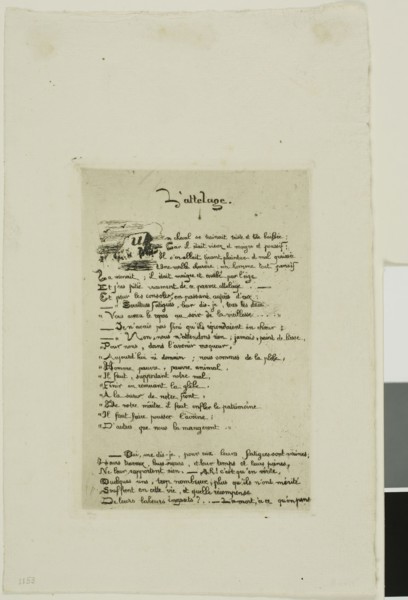 L'attelage.
Un cheval se trainait tête basse;
Car il était vieux et maigre et poussif;
Il s'en allait
Une vieille un homme tout pensif
Le suivait; il était maigre et vieilli par l'âge
Et j'eus pitié vraiment de ce pauvre attelage. —
Et pour les consoler, en passant auprès d'eux:
« Travailleurs fatigués, leur dis-je, tous les deux
« Vous aurez le repos au soir de la vieillesse....
— Je n'avais pas fini qu'ils répondaient en chœur:
— « Non, nous n'attendons rien; jamais, point de liesse,
Pour nous, dans l'avenir moqueur,
« Aujourd'hui ni demain; nous sommes de la plèbe,
« Homme, pauvre, pauvre animal,
« Il faut, supportant notre mal,
« Finir en creusant la glèbe
« A la sueur de notre front,
« De notre maître il faut enfler le patrimoine
« Il faut faire pousser l'avoine;
« D'autres que nous la mangeront. —
— Oui, me dis-je, pour eux leurs fatigues sont vaines;
et leur temps et leurs peines,
Ne leur rapportent rien. — Ah! c'est qu'en vérité,
Quelques uns, trop nombreux, plus qu'ils n'ont mérité
Souffrent en cette vie, et quelle récompense
De leurs labeurs ingrats? —